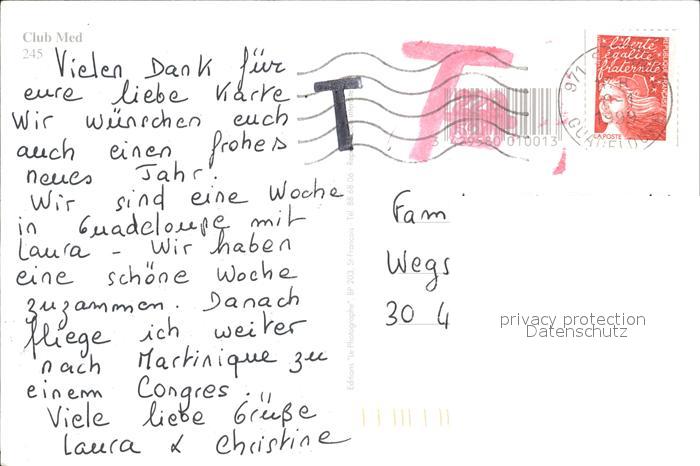 Club Med
245
Vielen Dank für
eure liebe Karte
Wir wünschen euch
auch einen frohes
neues Jahr.
Wir sind eine Woche
in Guadeloupe mit
Laura - Wir haben
eine schöne Woche
zuzammen. Danach
fliege ich weiter
nach Martinique zu
einem Congres.
Viele liebe Grüße
Laura & Christine
T
T
liberté
égalité
fraternité
LA POSTE
971
Fam
Wegs
30 4
privacy protection
Datenschutz